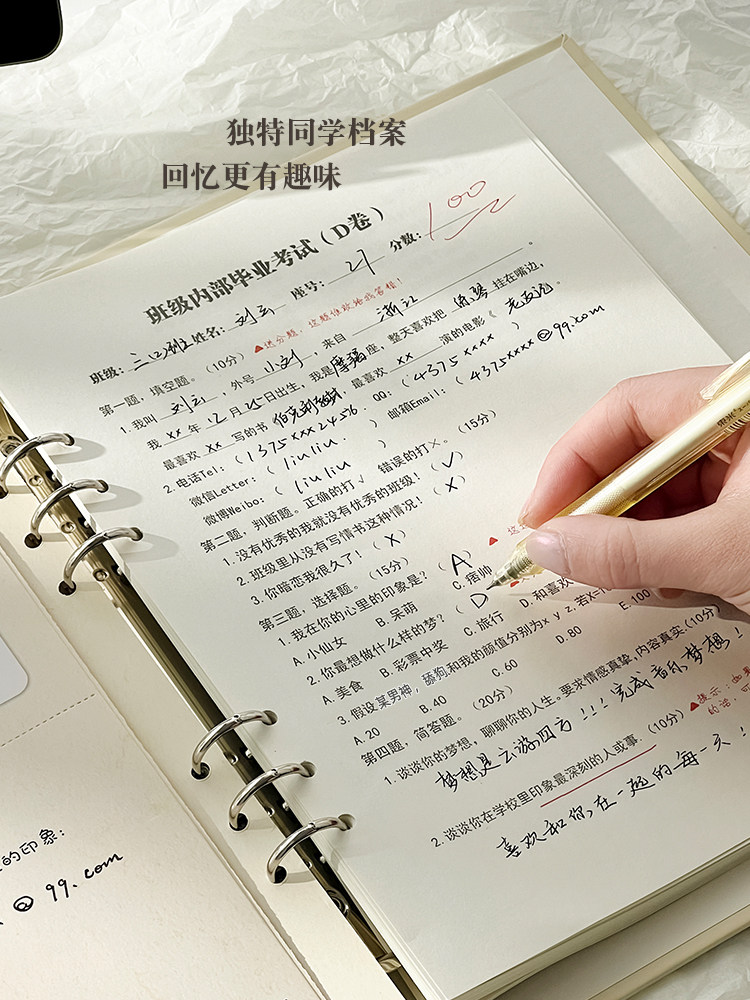 独特同学档案
回忆更有趣味
班级内部毕业考试（D卷）
班级：三(2)班 姓名：刘云 座号：27 分数：100
第一题，填空题。（10分）▲送分题，这题谁敢给我答错！
1.我叫 刘云，外号 小刘，来自 浙江。
我 xx 年 12 月 25 日出生，我是 摩羯 座，整天喜欢把 挂在嘴边，
最喜欢 xx 写的书 最喜欢 xx 演的电影《 》
2.电话Tel：（1375xxx2456.） QQ：（4375xxxx）
微信Letter：（liuliu.） 邮箱Email：（4375xxxx@99.com
微博Weibo：（liuliu）
第二题，判断题。正确的打√ 错误的打×。（15分）
1.没有优秀的我就没有优秀的班级！（√）
2.班级里从没有写情书这种情况！（X）
3.你暗恋我很久了！（X）
第三题，选择题。（15分）
1.我在你的心里的印象是？（A）
A.小仙女 B.呆萌 C.痞帅
2.你最想做什么样的梦？（D
A.美食 B.彩票中奖 C.旅行 D.和喜欢
3.假设某男神，舔狗和我的颜值分别为x y z,若X=1
A.20 B.40 C.60 D.80 E.100
第四题，简答题。（20分）
1.谈谈你的梦想，聊聊你的人生。要求情感真挚，内容真实(10分)
梦想是云游四方！！！完成音乐梦想！
2.谈谈你在学校里印象最深刻的人或事.（10分）▲提示：如果
的话，可
喜欢和你在一起的每一天！
的印象：
@ 99.com